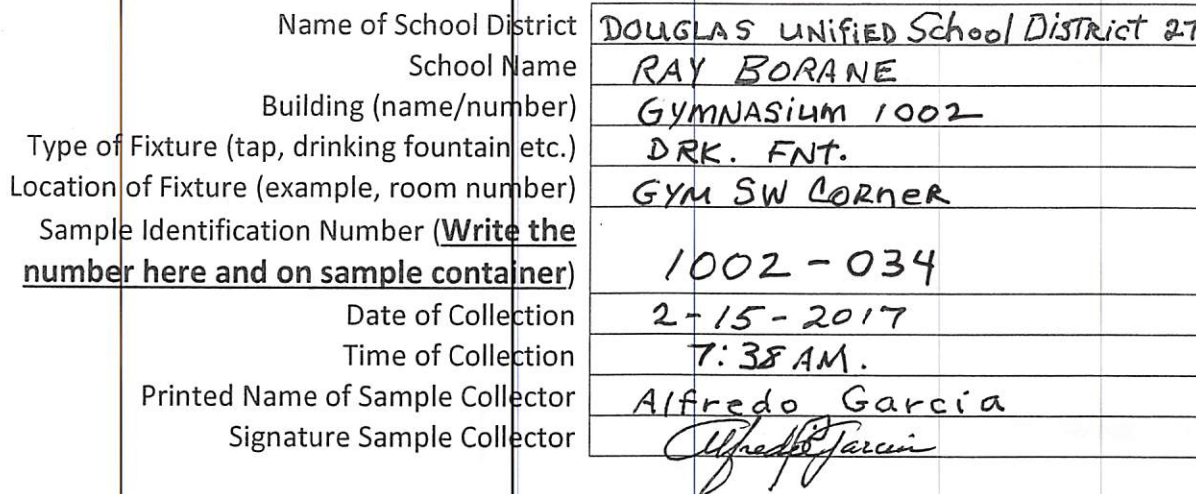 Name of School District DOUGLAS UNiFiED School DISTRicT 27
School Name RAY BORANE
Building (name/number) GYMNASiUM 1002
Type of Fixture (tap, drinking fountain etc.) DRK. FNT.
Location of Fixture (example, room number) GYM SW CORneR
Sample Identification Number (Write the
number here and on sample container) 1002-034
Date of Collection 2-15-2017
Time of Collection 7:38 AM.
Printed Name of Sample Collector Alfredo Garcia
Signature Sample Collector Alfredo Garcia